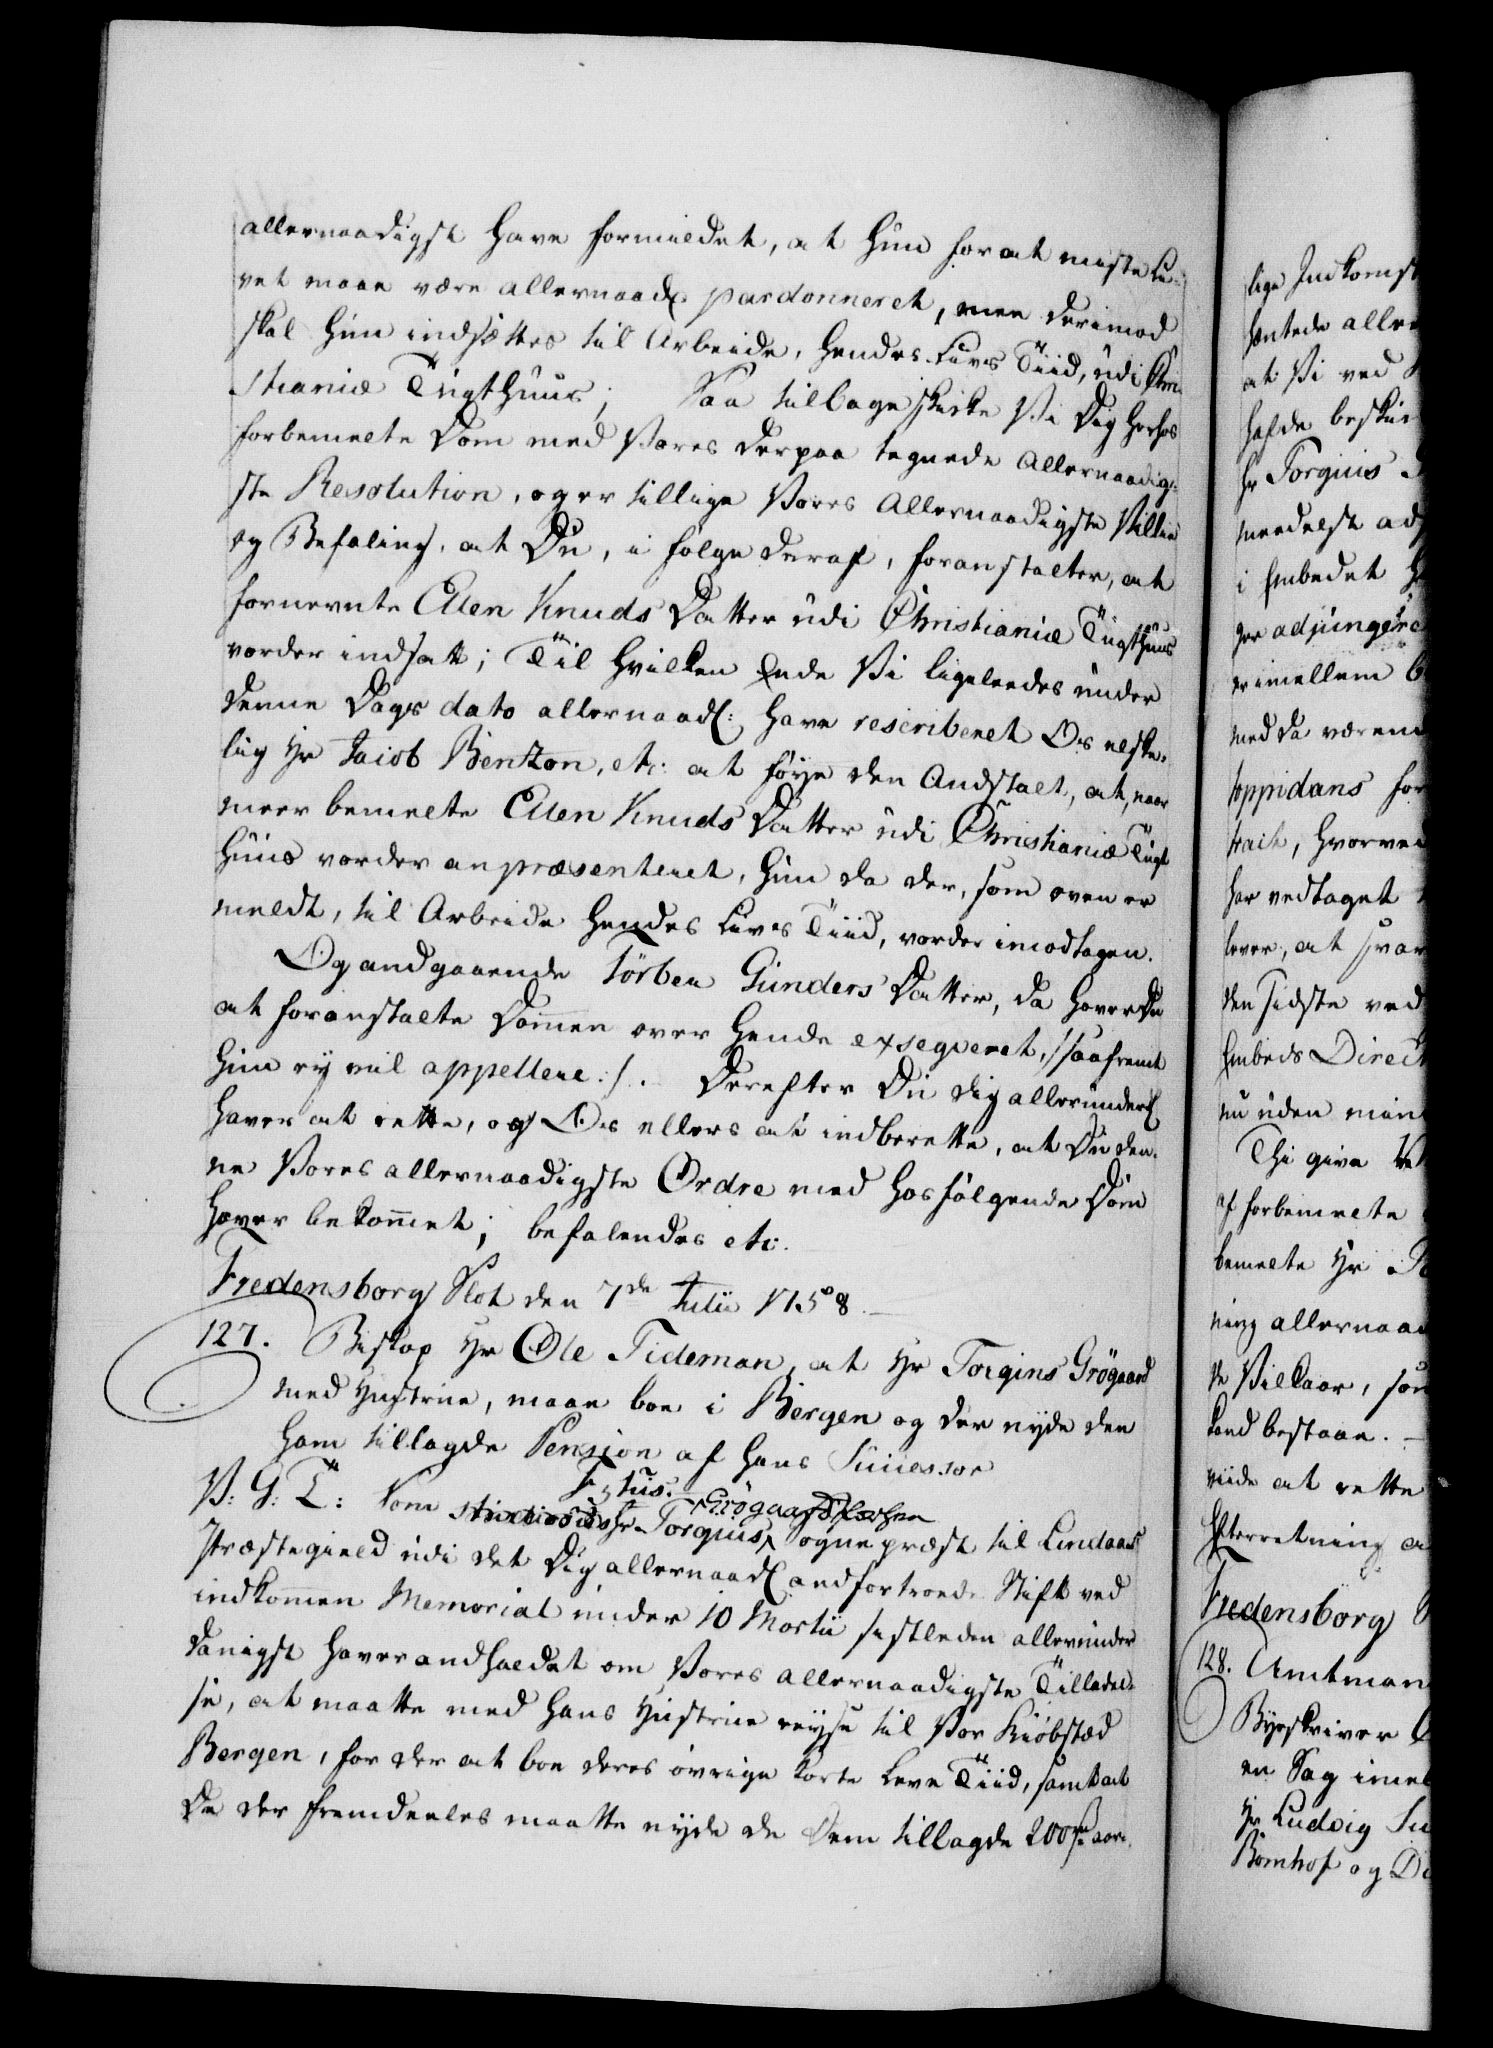 allernaadigst have formildet, at hun for at miste Li-
vet maae være allernaad: pardonneret, men derimod
skal hun indsættes til Arbeide, hendes Livs Tiid, udi Chri-
stianiæ Tugthuus; Saa tilbageskikke Vi Dig herhos
forbemelte Dom med Vores derpaa tegnede Allernaadig-
ste Resolution, og er tillige Vores Allernaadigste Villie
og Befaling, at Du, i følge deraf, foranstalter, at
fornevnte Ellen Knuds Datter udi Christianiæ Tugthuus
vorder indsatt; Til hvilken Ende Vi ligeledes under
denne Dags dato allernaad: have rescriberet Os elske-
lig Hr Jacob Benzon, etc: at føye den Andstalt, at, naar
meerbemelte Ellen Knuds Datter udi Christianiæ Tugt
huus vorder anpræsenteret, hun da der, som oven er
meldt, til Arbeide hendes Livs Tiid, vorder imodtagen.
Og andgaaende Törber Gunders Datter, da haver Du
at foranstalte Dommen over hende exseqveret, /: saafremt
hun ey vil appellere :/. Derefter Du dig allerunderd:
haver at rette, og Os ellers at indberette, at Du den-
ne Vores allernaadigste Ordre med hosfølgende Dom
haver bekommet; befalendes etc.
Fredensborg Slot den 7de Julii 1758.
127. Biskop Hr Ole Tideman, at Hr Torgius Grögaard
med Hustrue, maae boe i Bergen og der nyde den
ham tillagde Pension af hans Successor
V: G: T: Som Hr Torgius Grögaard Sogne præst til Lindaas
Præstegield udi det Dig allernaad: andfortroede Stift ved
indkommen Memorial under 10 Martii sistleden allerunder
danigst haver andholdet om Vores allernaadigste Tilladel-
se, at maatte med hans Hustrue reyse til Vor Kiøbstæd
Bergen, for der at boe deres øvrige korte Leve Tiid, samt at
de der fremdeeles maatte nyde de dem tillagde 200 rd aar-
lige Indkomst
hentede aller
at Vi ved
hafde beskik
Hr Torgius
meedelst ad
i Embedet
ger adjungere
er imellem
med da værend
toppidans for
tract, hvorved
har vedtaget
lever, at svar
den sidste ved
Embeds Direct
nu uden min
Thi give Vi
af forbemelte
bemelte Hr
ning allernaad
de Vilkaar, som
kand bestaae.
viide at rette
Efterretning
Fredensborg
128. Amtmand
Byeskriver
en Sag imel
Hr Ludvig
Bomhof og